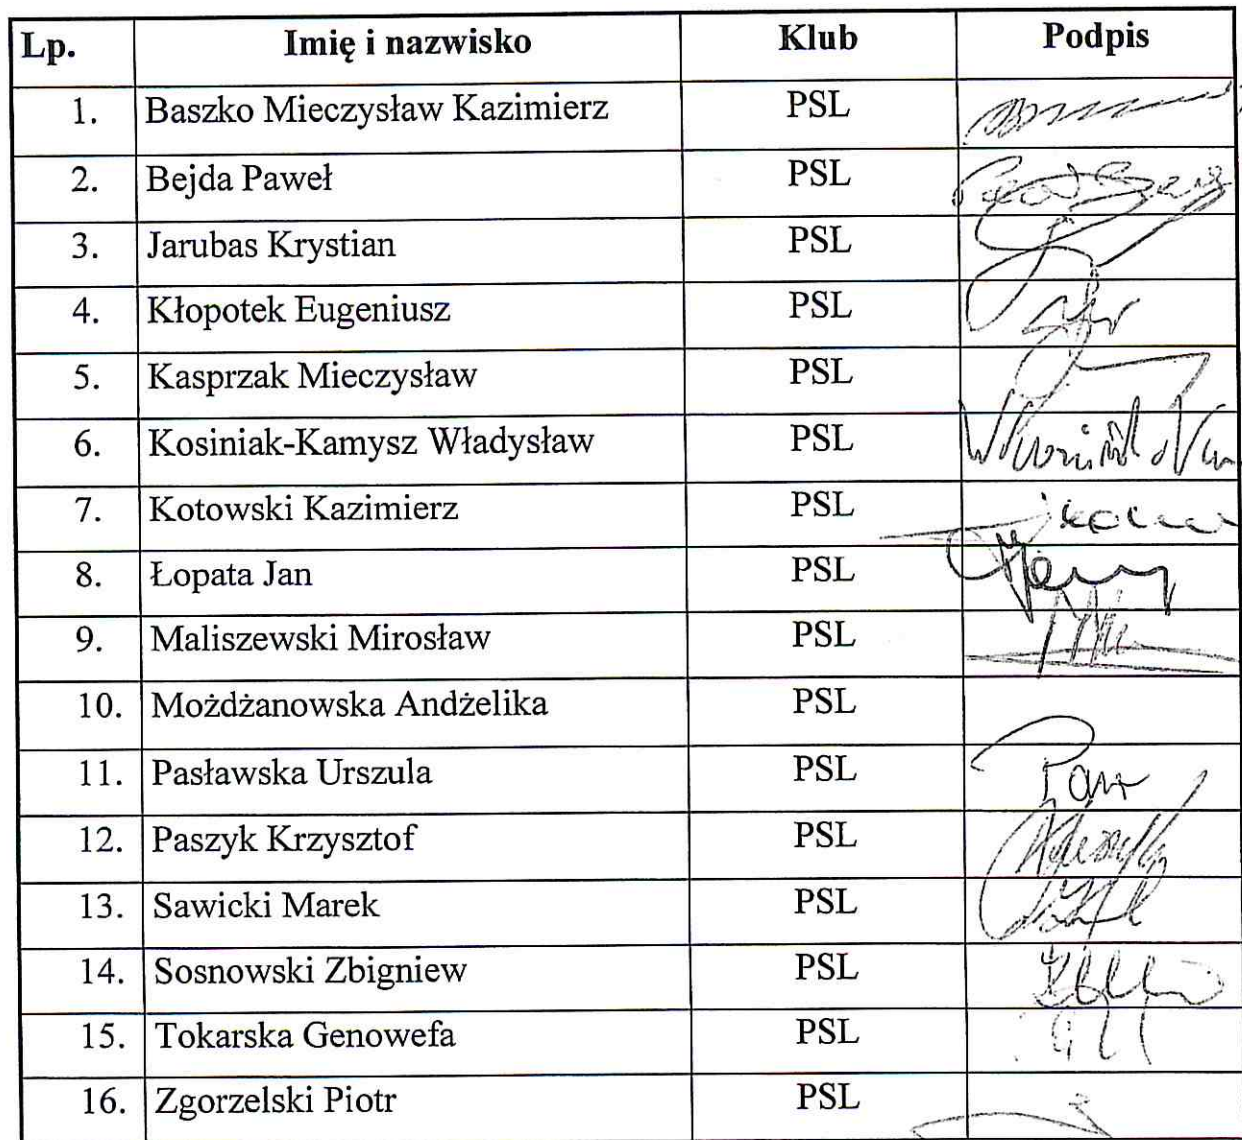 Lp. Imię i nazwisko Klub Podpis
1. Baszko Mieczysław Kazimierz PSL
2. Bejda Paweł PSL
3. Jarubas Krystian PSL
4. Kłopotek Eugeniusz PSL
5. Kasprzak Mieczysław PSL
6. Kosiniak-Kamysz Władysław PSL
7. Kotowski Kazimierz PSL
8. Łopata Jan PSL
9. Maliszewski Mirosław PSL
10. Możdżanowska Andżelika PSL
11. Pasławska Urszula PSL
12. Paszyk Krzysztof PSL
13. Sawicki Marek PSL
14. Sosnowski Zbigniew PSL
15. Tokarska Genowefa PSL
16. Zgorzelski Piotr PSL